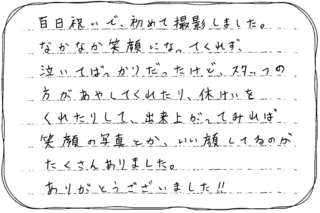 百日祝いで、初めて撮影しました。
なかなか笑顔になってくれず、
泣いてばっかりだったけど、スタッフの
方があやしてくれたり、休けいを
くれたりして、出来上がってみれば
笑顔の写真とか、いい顔してるのが
たくさんありました。
ありがとうございました!!